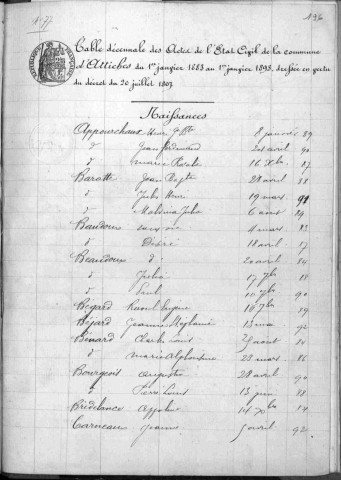 Table décennale des Actes de l'Etat Civil de la commune
d'Attiches du 1er janvier 1883 au 1er janvier 1893, dressée en vertu
du décret du 20 juillet 1807
Naissances
Appourchaux Henri J Bte 8 janvier 89
d° Jean 24 avril 90
d° Marie Rosalie 16 Xbre 87
Baratte Jean Bapte 28 avril 88
d° Jules Henri 19 mars
d° Julia 6 août 84
Baudoux 4 mars 83
d° Désiré 18 avril 87
Beaudoux d° 20 avril 84
d° Julia 17 7bre 88
d° Paul 10 7bre 90
Bégard Raoul Eugène 10 7bre 89
Béjard Jeanne Stéphanie 13 mai 92
Benard Charles Louis 29 août
d° Marie Alphonsine 22 mars 86
Bourgeois Augustin 28 avril 90
d° Louis 13 juin 88
Brédelance 14 7bre 84
Carneaux Jeanne 5 avril 92